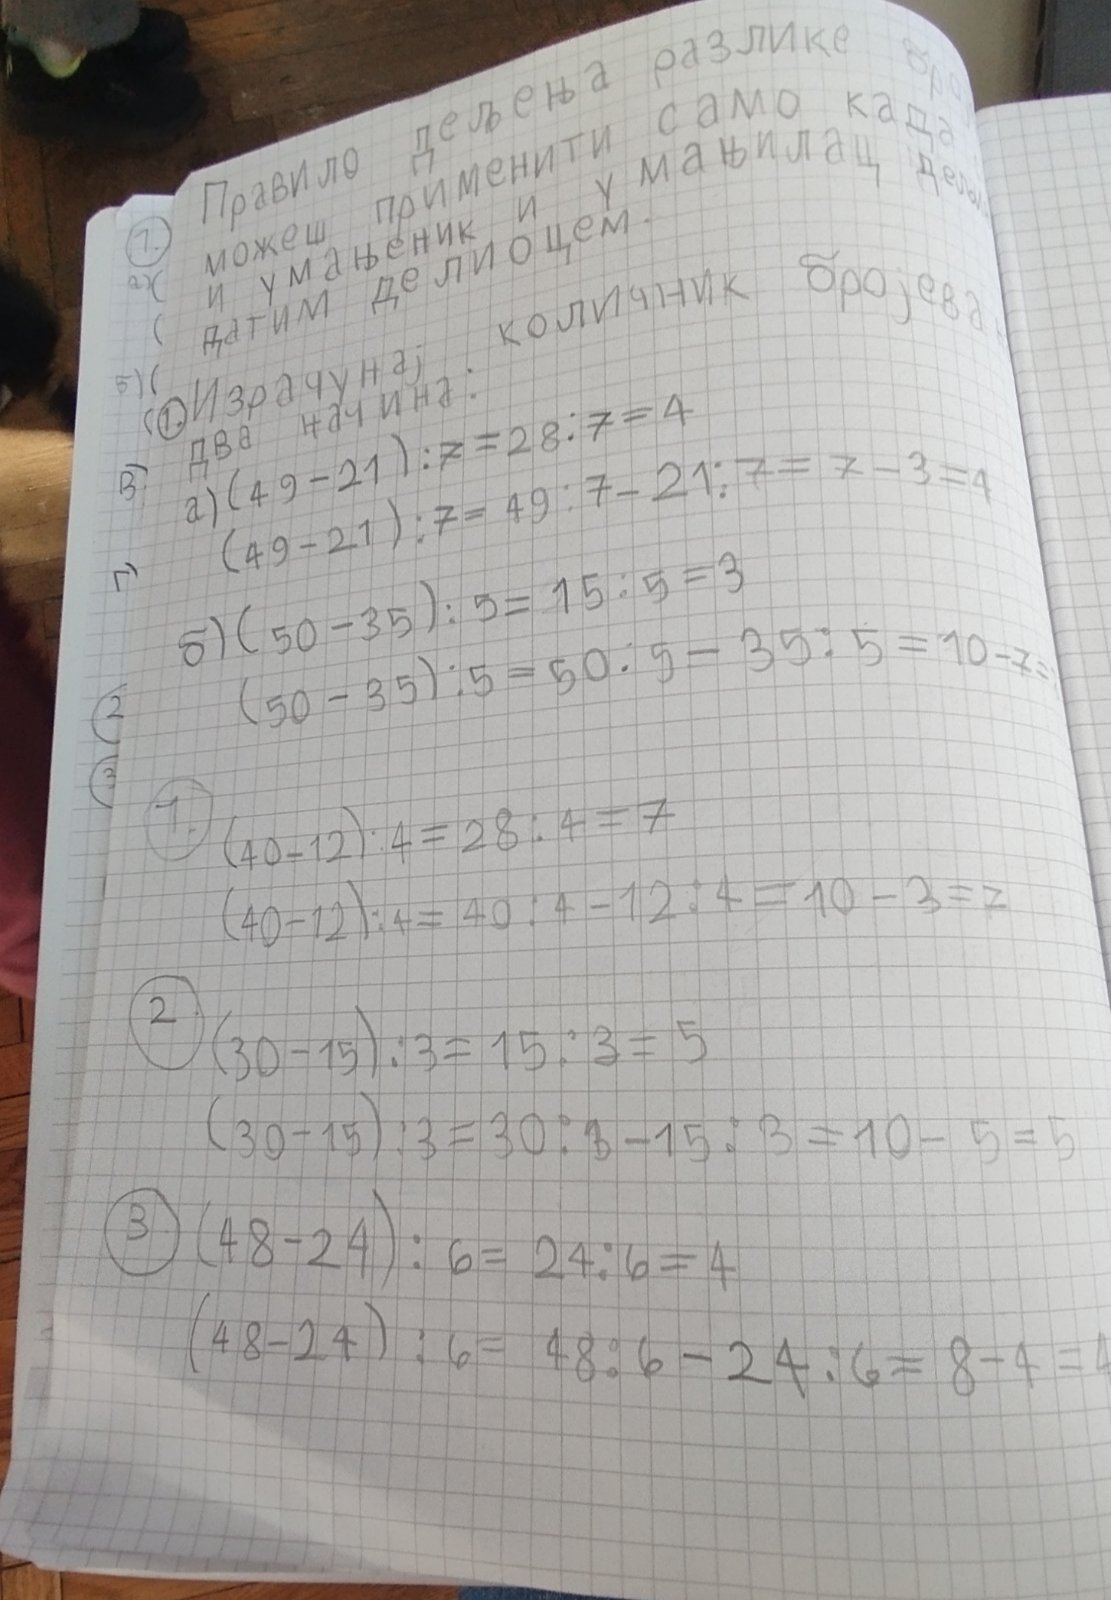 Правило дељења разлике
можеш применити само када
и умањеник и умањилац
датим делиоцем.
1. Израчунај количник бројева
два начина:
а) (49-21):7=28:7=4
(49-21):7=49:7-21:7=7-3=4
б) (50-35):5=15:5=3
(50-35):5=50:5-35:5=10-7=
1. (40-12):4=28:4=7
(40-12):4=40:4-12:4=10-3=7
2 (30-15):3=15:3=5
(30-15):3=30:3-15:3=10-5=5
3 (48-24):6=24:6=4
(48-24):6=48:6-24:6=8-4=4
1.
а)
б)
в)
г)
2
3